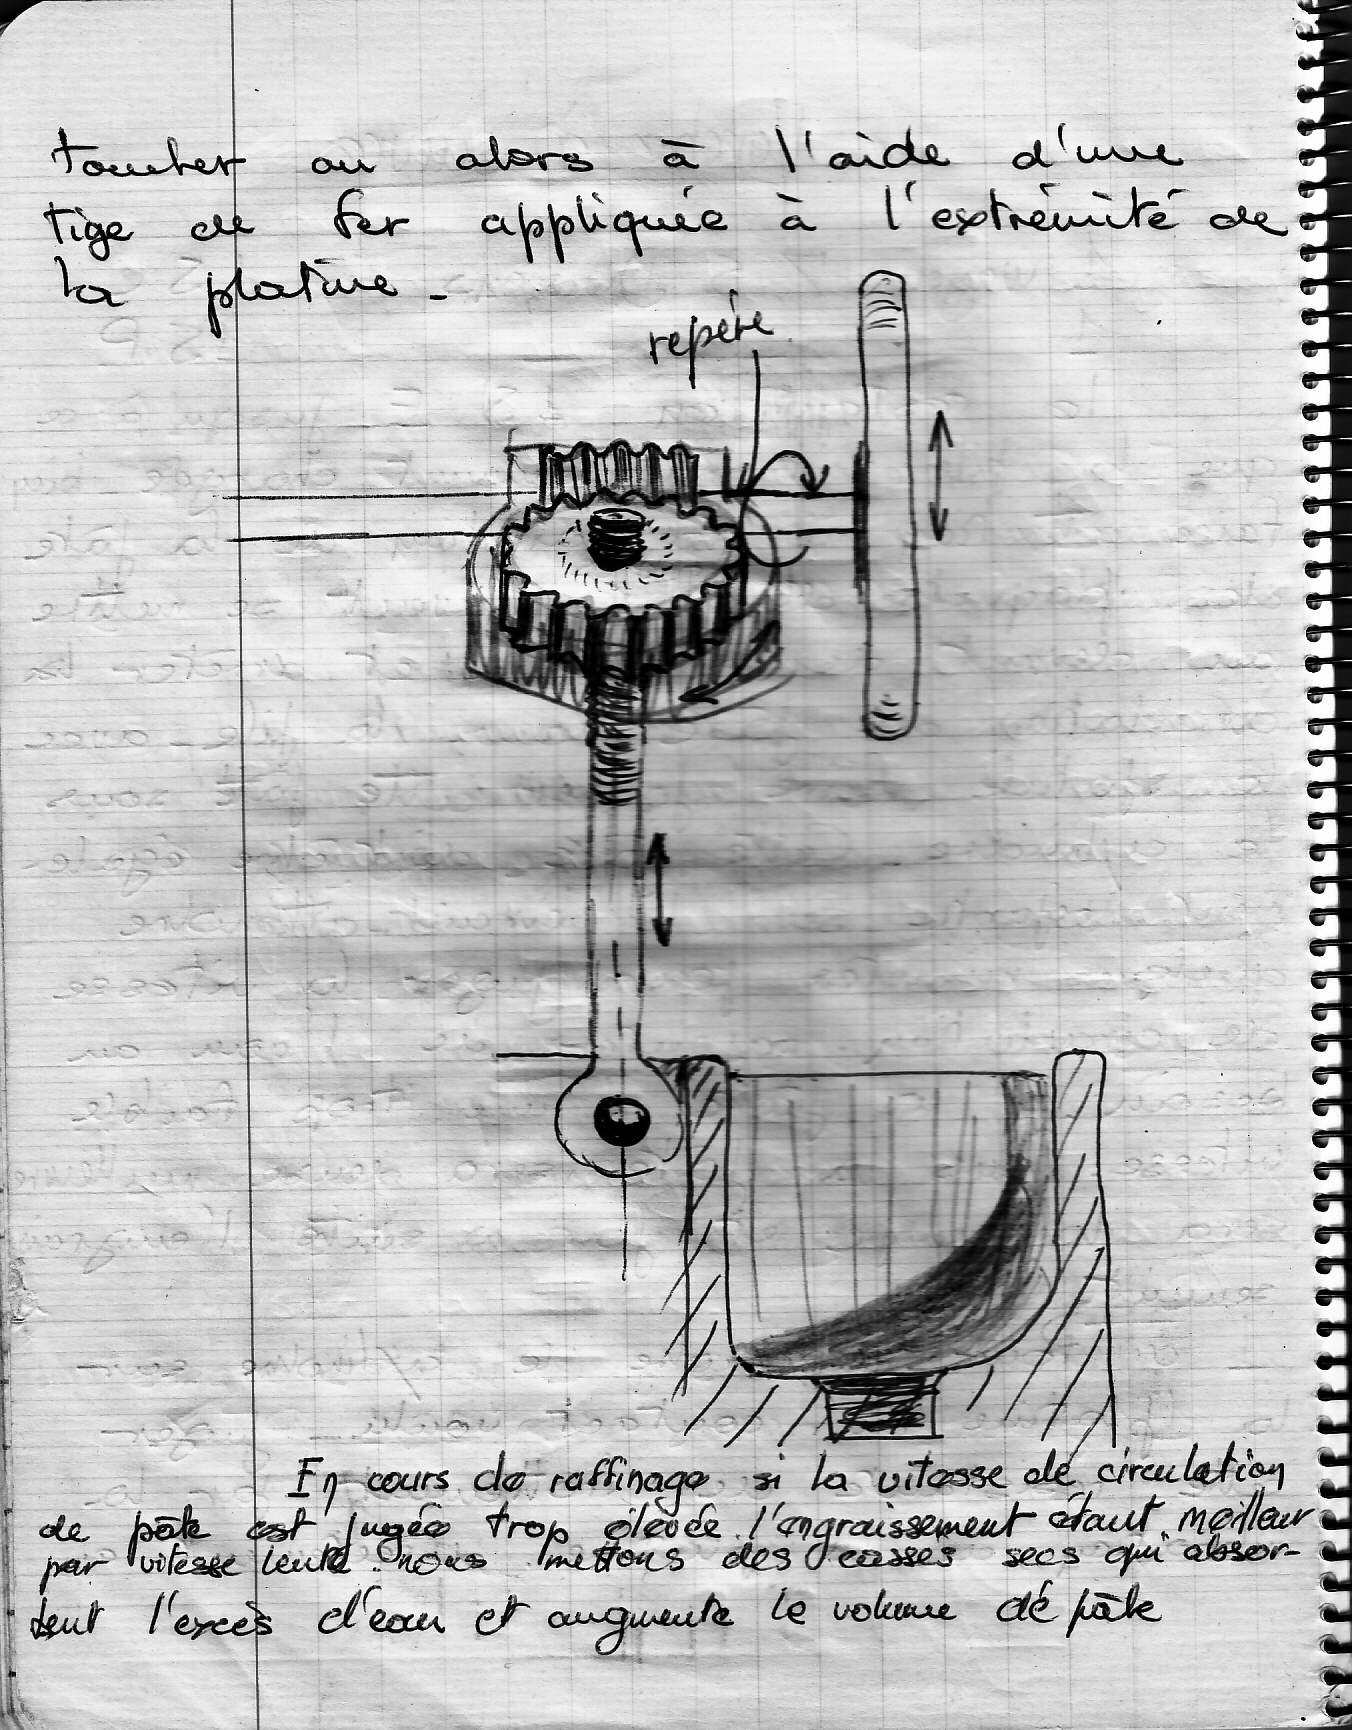 tomber ou alors à l'aide d'une
tige de fer appliquée à l'extrémité de
la platine -
repère
En cours de raffinage si la vitesse de circulation
de pâte est jugée trop élevée l'engraissement étant meilleur
par vitesse lente. nous mettons des casses secs qui absor-
bent l'excès d'eau et augmente le volume de pâte